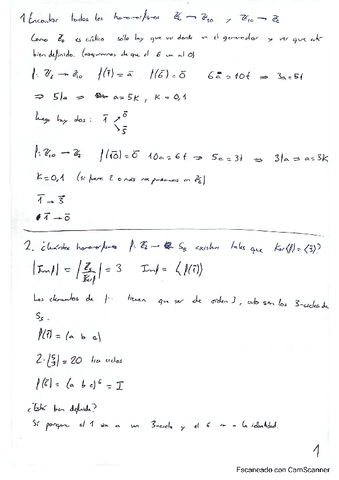 1 Encontrar todos los homomorfismos Z₆ → Z₁₀ y Z₁₀ → Z₆
Como Z₆ es cíclico solo hay que ver donde va el generador y ver que esté
bien definido. (asegurarnos de que el 6 va al 0)
f: Z₆ → Z₁₀ f(1̄) = ā f(6̄) = 0̄ 6a = 10t ⇒ 3a = 5t
⇒ 5|a ⇒ a = 5k, k = 0,1
luego hay dos: 1̄ ↗ 0̄
↘ 5̄
f: Z₁₀ → Z₆ f(10) = 0̄ 10a = 6t ⇒ 5a = 3t ⇒ 3|a ⇒ a = 3k
k = 0,1 (si fuera 2 o más nos en Z₆)
1̄ → 3̄
1̄ → 0̄
2. ¿Cuántos homomorfismos f: Z₆ → S₅ existen tales que Ker(f) = ⟨3⟩?
|Imf| = |Z₆/Kerf| = 3 Imf = ⟨f(1̄)⟩
Los elementos de tienen que ser de orden 3, solo son los 3-ciclos de
S₅.
f(1̄) = (a b c)
2·(5 3) = 20 tres ciclos
f(6̄) = (a b c)⁶ = I
¿Está bien definida?
Sí porque el 1 va a un 3-ciclo y el 6 va a la identidad.
1
Escaneado con CamScanner